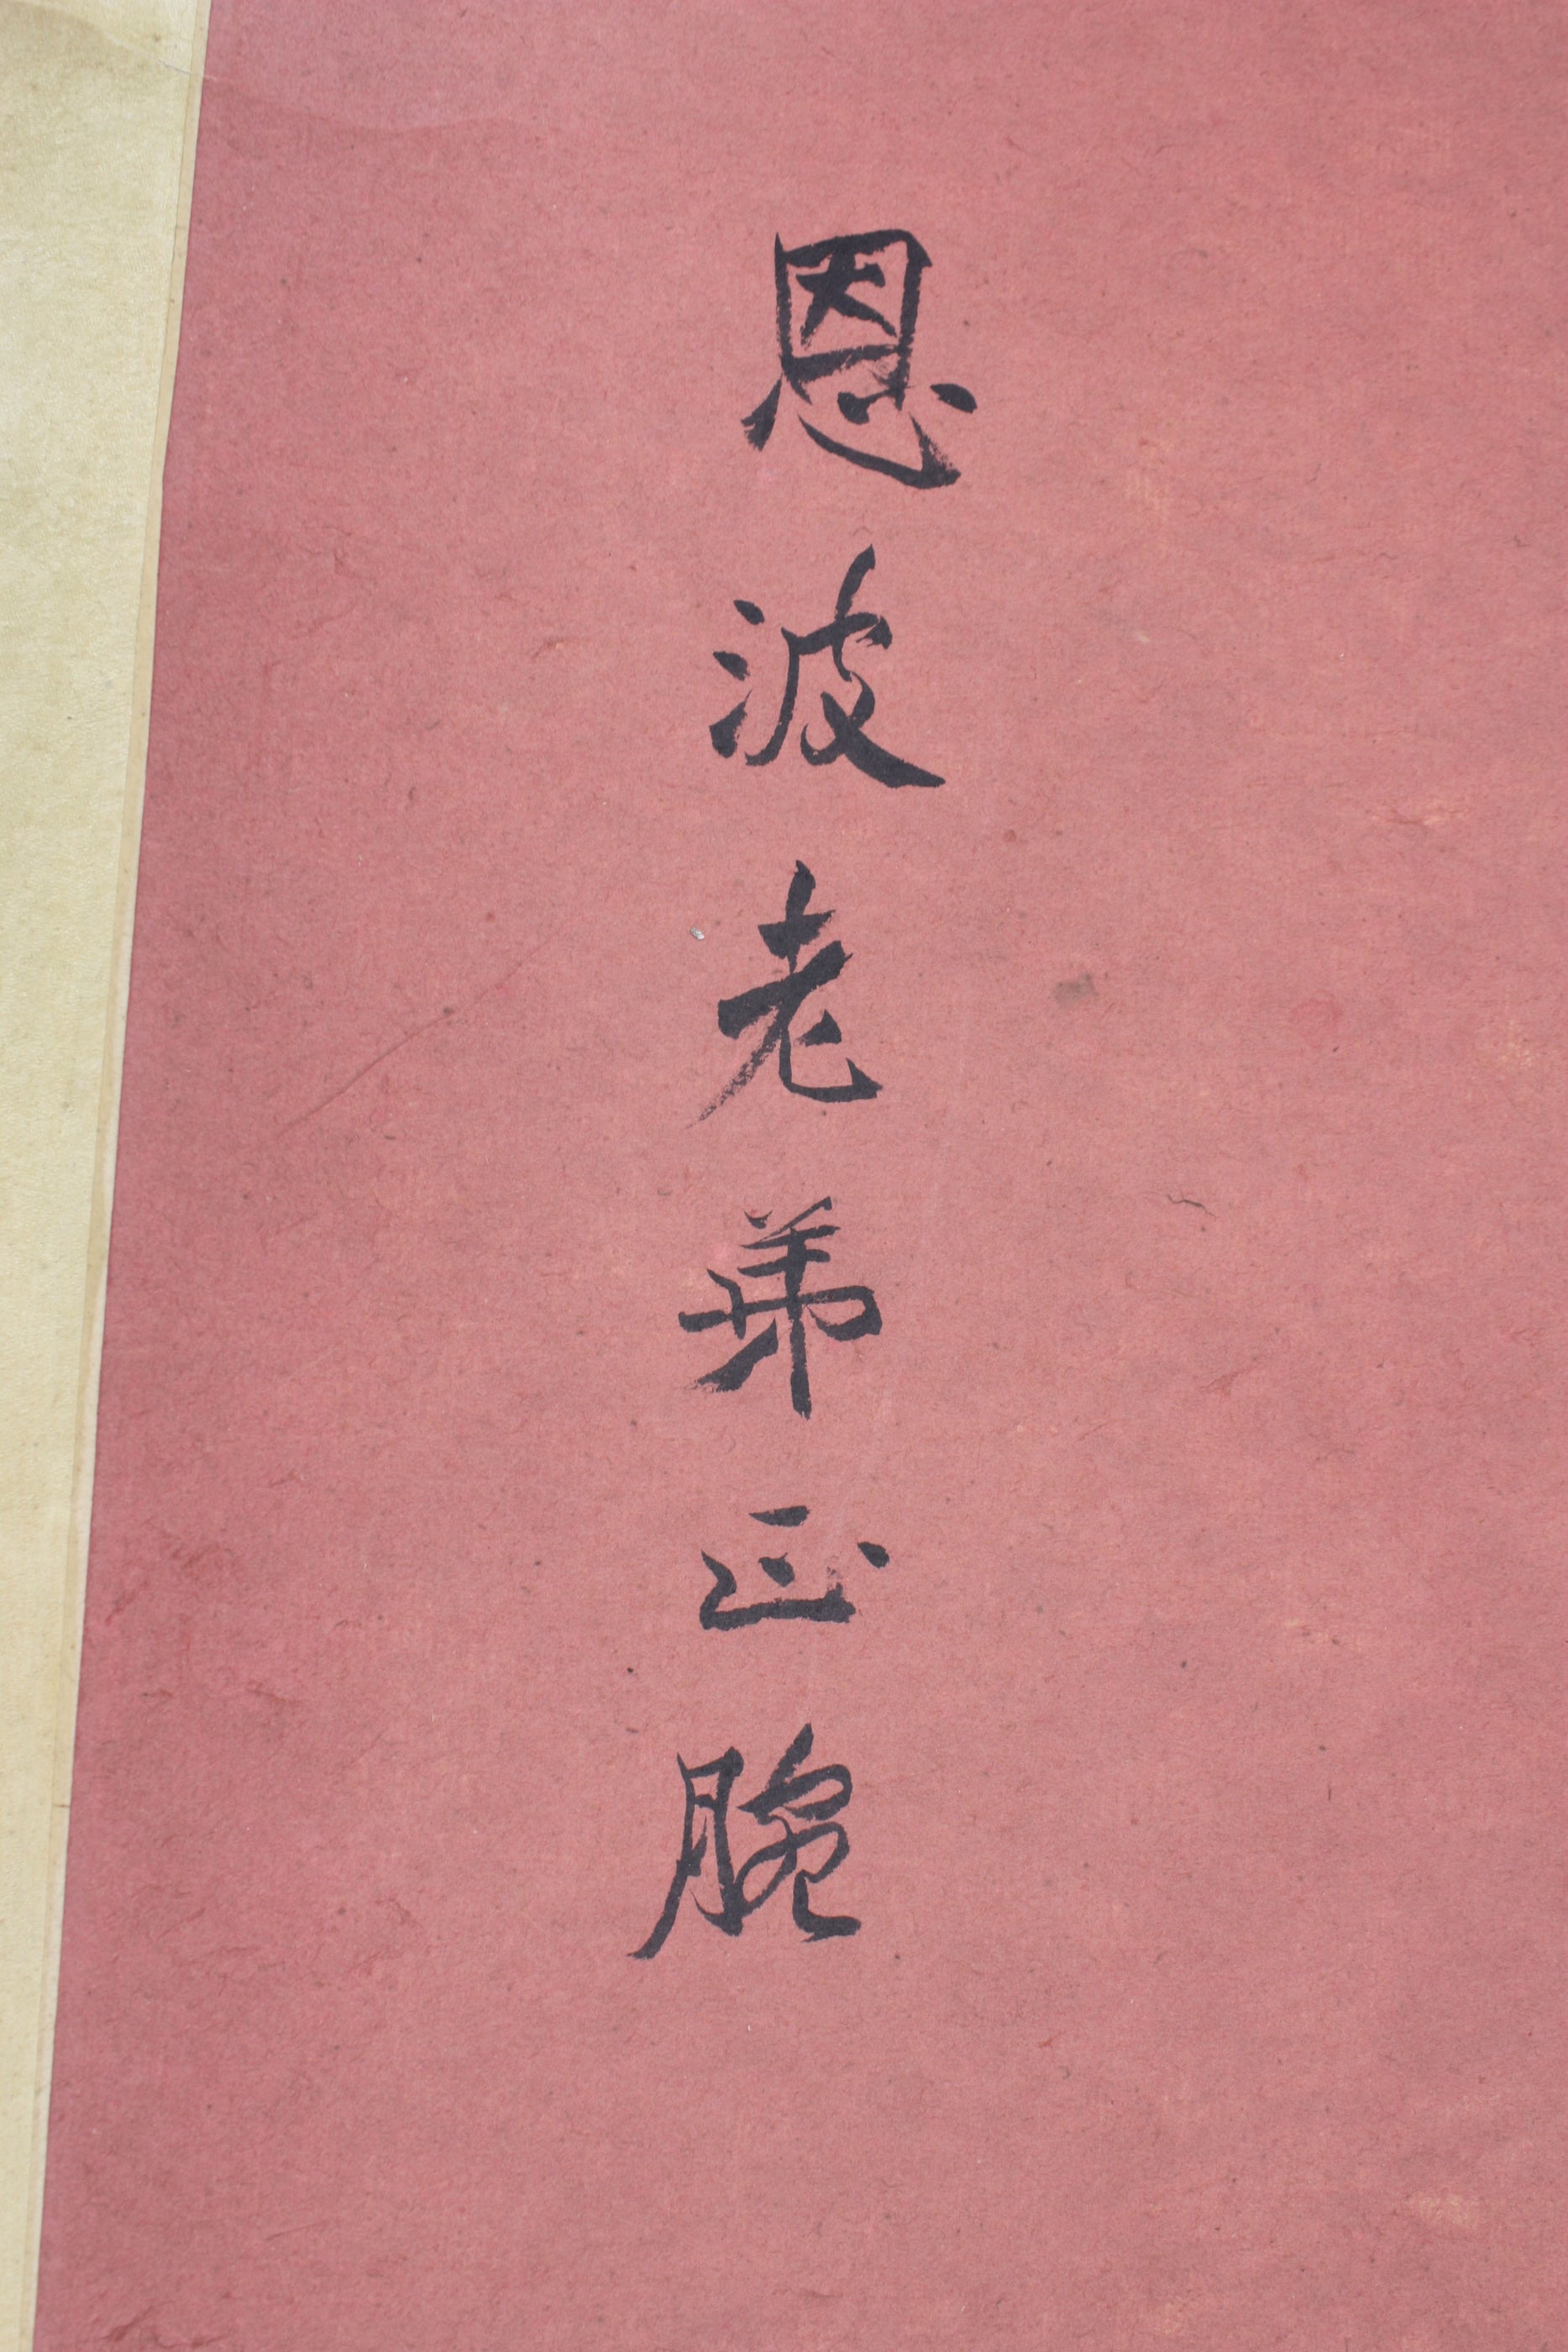 恩波老弟正腕